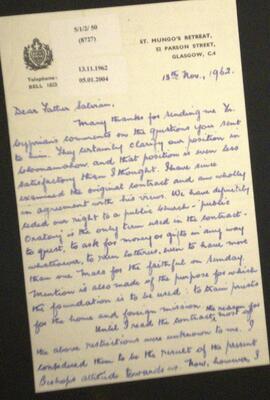 5/1/2/ 50
(8727)
13.11.1962
05.01.2004
Telephone:
BELL 1823
ST. MUNGO'S RETREAT,
52 PARSON STREET,
GLASGOW, C.4
13th Nov., 1962.
Dear Father Salvian,
Many thanks for sending me Fr.
Cyprian's comments on the questions you sent
to him. They certainly clarify our position in
Cloonamahon, and that position is even less
satisfactory than I thought. I have since
examined the original contract and am wholly
in agreement with his views. We have definitely
ceded our right to a public church - "public
Oratory" is the only term used in the contract -
to quest, to ask for money or gifts in any way
whatsoever, to run lotteries, even to have more
than one Mass for the faithful on Sunday.
Mention is also made of the purpose for which
the foundation is to be used: to train priests
for the home and foreign mission.
Until I read the contract, most of
the above restrictions were unknown to me. I
considered them to be the result of the present
Bishop's attitude towards us. Now, however, I